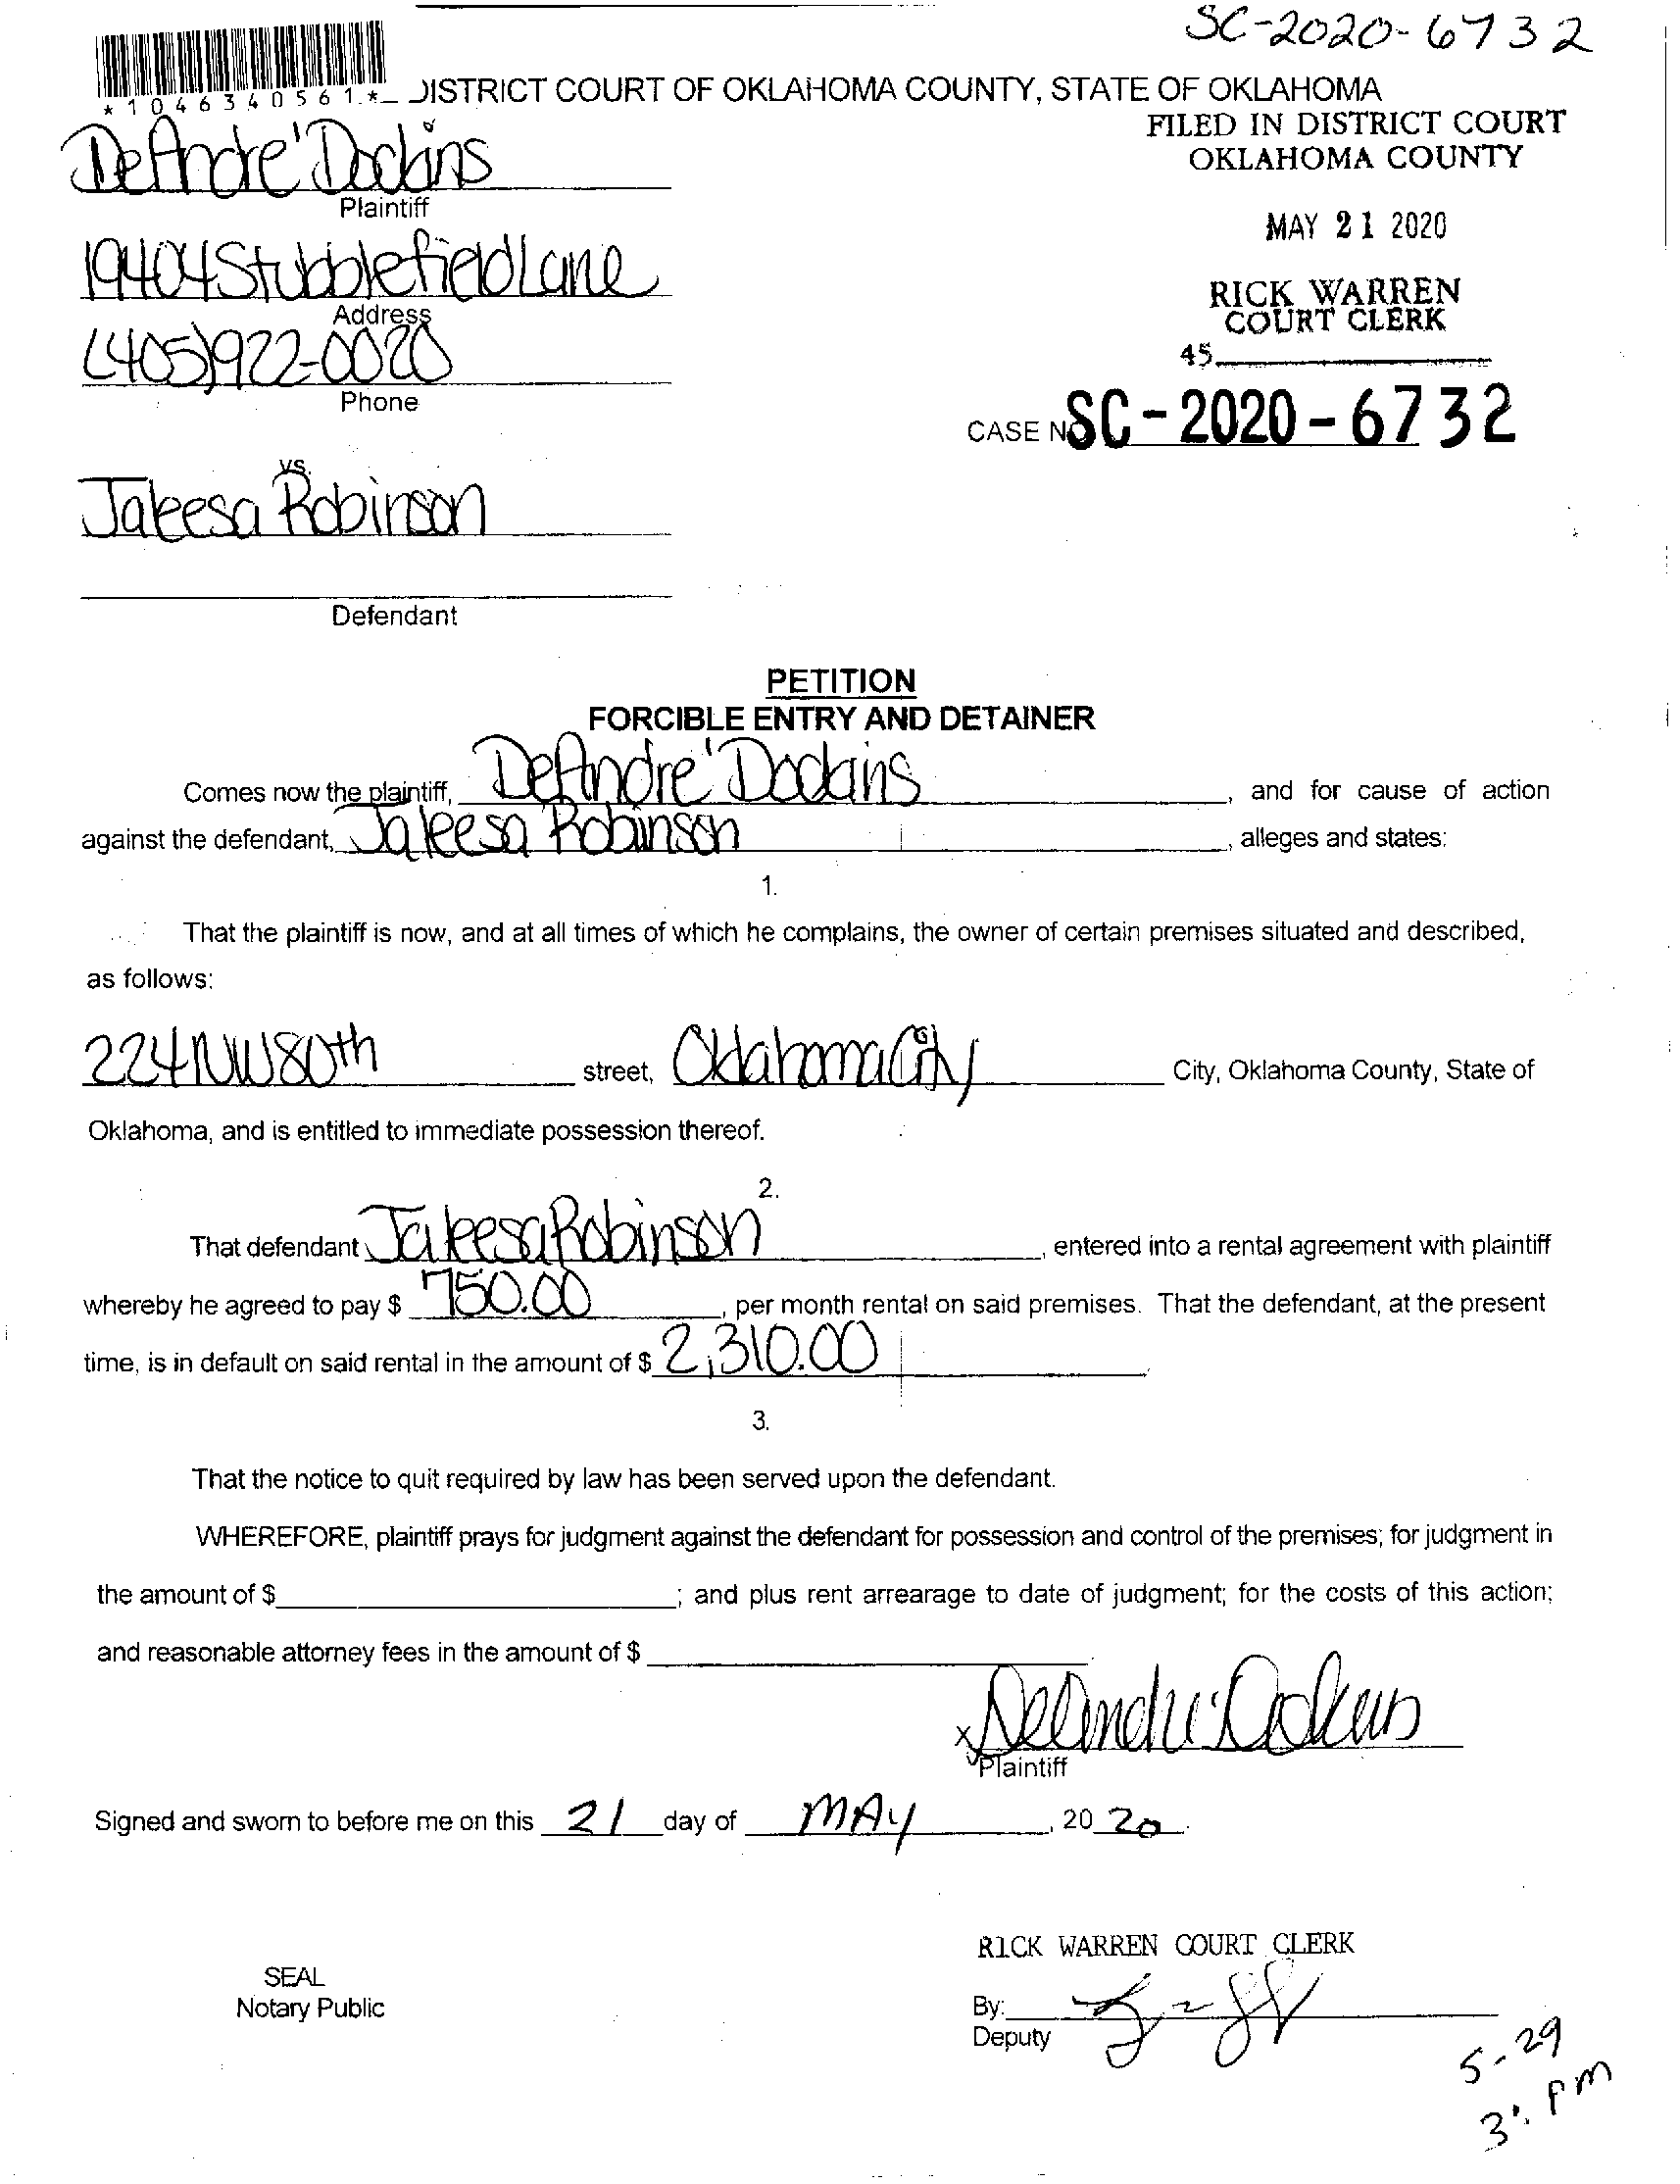 SC-2020-6732
*1046340561*
DISTRICT COURT OF OKLAHOMA COUNTY, STATE OF OKLAHOMA
FILED IN DISTRICT COURT
OKLAHOMA COUNTY
DeAndre' Dockins
Plaintiff
MAY 21 2020
19404 Stubblefield Lane
Address
RICK WARREN
COURT CLERK
(405)922-0020
Phone
45
CASE NO SC-2020-6732
vs.
Jakeesa Robinson
Defendant
PETITION
FORCIBLE ENTRY AND DETAINER
Comes now the plaintiff, DeAndre' Dockins, and for cause of action
against the defendant, Jakeesa Robinson, alleges and states:
1.
That the plaintiff is now, and at all times of which he complains, the owner of certain premises situated and described,
as follows:
224 NW 80th street, Oklahoma City City, Oklahoma County, State of
Oklahoma, and is entitled to immediate possession thereof.
2.
That defendant Jakeesa Robinson, entered into a rental agreement with plaintiff
whereby he agreed to pay $ 750.00, per month rental on said premises. That the defendant, at the present
time, is in default on said rental in the amount of $ 2,310.00.
3.
That the notice to quit required by law has been served upon the defendant.
WHEREFORE, plaintiff prays for judgment against the defendant for possession and control of the premises; for judgment in
the amount of $ ; and plus rent arrearage to date of judgment; for the costs of this action;
and reasonable attorney fees in the amount of $ .
x DeAndre' Dockins
Plaintiff
Signed and sworn to before me on this 21 day of MAY, 20 20.
RICK WARREN COURT CLERK
SEAL
Notary Public
By:
Deputy
5-29
3: pm